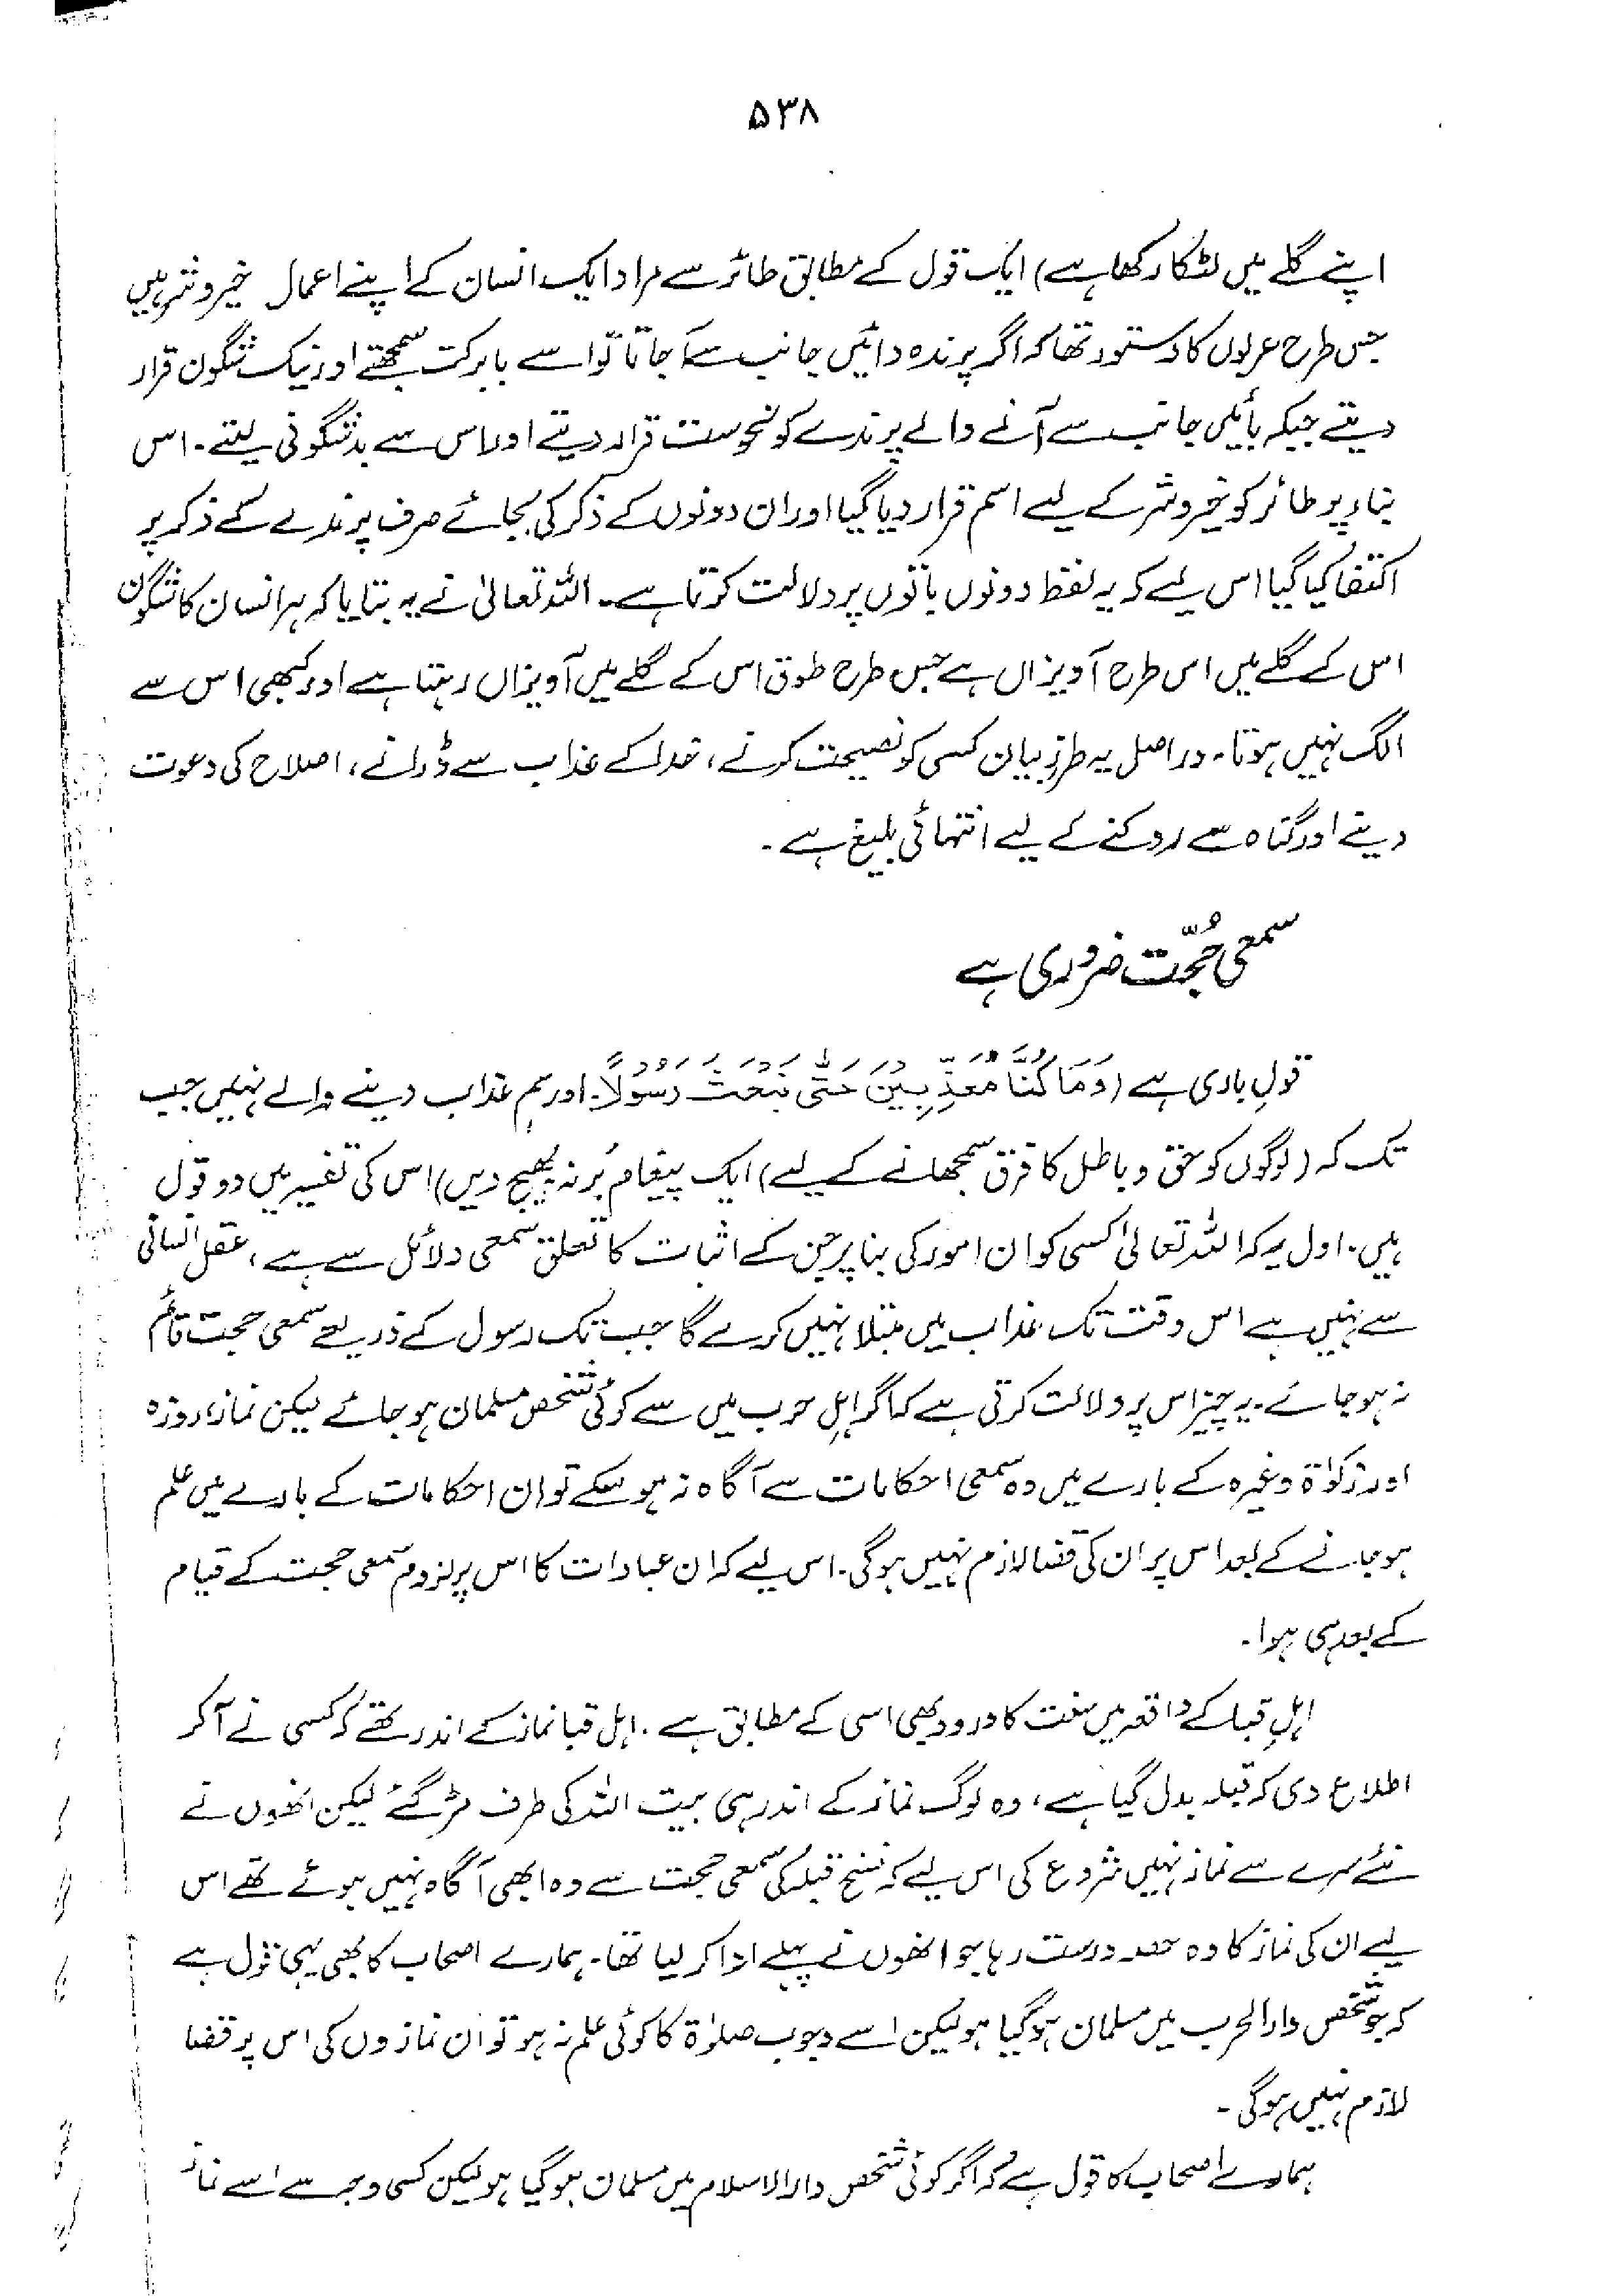 ۵۳۸
اپنے گلے میں لٹکا رکھا ہے) ایک قول کے مطابق طائر سے مراد ایک انسان کے اپنے اعمال خیر و شر ہیں
جس طرح عربوں کا دستور تھا کہ اگر پرندہ دائیں جانب سے آجاتا تو اسے بابرکت سمجھتے اور نیک شگون قرار
دیتے جبکہ بائیں جانب سے آنے والے پرندے کو نحوست قرار دیتے اور اس سے بدشگونی لیتے۔ اس
بناء پر طائر کو خیر و شر کے لیے اسم قرار دیا گیا اور ان دونوں کے ذکر کی بجائے صرف پرندے کے ذکر پر
اکتفا کیا گیا اس لیے کہ یہ لفظ دونوں باتوں پر دلالت کرتا ہے۔ اللہ تعالیٰ نے یہ بتایا کہ ہر انسان کا شگون
اس کے گلے میں اس طرح آویزاں ہے جس طرح طوق اس کے گلے میں آویزاں رہتا ہے اور کبھی اس سے
الگ نہیں ہوتا۔ دراصل یہ طرزِ بیان کسی کو نصیحت کرنے، خدا کے عذاب سے ڈرانے، اصلاح کی دعوت
دینے اور گناہ سے روکنے کے لیے انتہائی بلیغ ہے۔
سمعی حُجّت ضروری ہے
قولِ باری ہے (وَمَا كُنَّا مُعَذِّبِيْنَ حَتّٰى نَبْعَثَ رَسُوْلًا۔ اور ہم عذاب دینے والے نہیں جب
تک کہ (لوگوں کو حق و باطل کا فرق سمجھانے کے لیے) ایک پیغام بَر نہ بھیج دیں) اس کی تفسیر میں دو قول
ہیں۔ اول یہ کہ اللہ تعالیٰ کسی کو ان امور کی بنا پر جن کے اثبات کا تعلق سمعی دلائل سے ہے، عقل انسانی
سے نہیں ہے اس وقت تک عذاب میں مبتلا نہیں کرے گا جب تک رسول کے ذریعے سمعی حجت قائم
نہ ہو جائے۔ یہ چیز اس پر دلالت کرتی ہے کہ اگر اہلِ حرب میں سے کوئی شخص مسلمان ہو جائے لیکن نماز، روزہ
اور زکوٰۃ وغیرہ کے بارے میں وہ سمعی احکامات سے آگاہ نہ ہو سکے تو ان احکامات کے بارے میں علم
ہو جانے کے بعد اس پر ان کی قضا لازم نہیں ہوگی۔ اس لیے کہ ان عبادات کا اس پر لزوم سمعی حجت کے قیام
کے بعد ہی ہوا۔
اہلِ قبا کے واقعہ میں سنت کا ورود بھی اسی کے مطابق ہے۔ اہل قبا نماز کے اندر تھے کہ کسی نے آکر
اطلاع دی کہ قبلہ بدل گیا ہے، وہ لوگ نماز کے اندر ہی بیت اللہ کی طرف مڑ گئے لیکن انھوں نے
نئے سرے سے نماز نہیں شروع کی اس لیے کہ نسخ قبلہ کی سمعی حجت سے وہ ابھی آگاہ نہیں ہوئے تھے اس
لیے ان کی نماز کا وہ حصہ درست رہا جو انھوں نے پہلے ادا کر لیا تھا۔ ہمارے اصحاب کا بھی یہی قول ہے
کہ جو شخص دارالحرب میں مسلمان ہو گیا ہو لیکن اسے وجوب صلوٰۃ کا کوئی علم نہ ہو تو ان نمازوں کی اس پر قضا
لازم نہیں ہوگی۔
ہمارے اصحاب کا قول ہے کہ اگر کوئی شخص دارالاسلام میں مسلمان ہو گیا ہو لیکن کسی وجہ سے اسے نماز